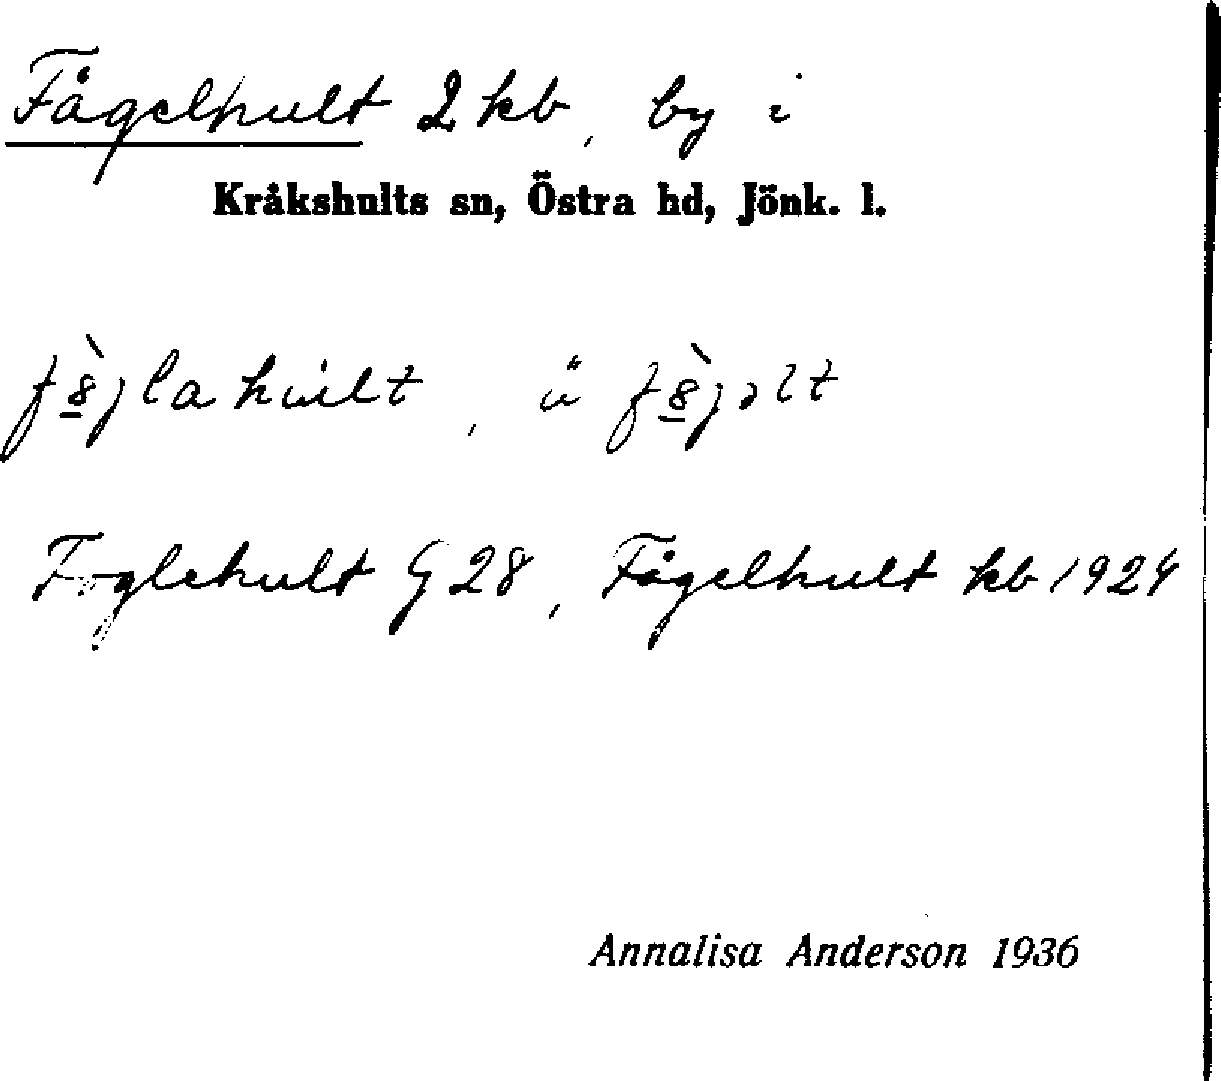 Fågelhult 2 kb, by i
Kråkshults sn, Östra hd, Jönk. l.
Foglehult G 28, Fågelhult kb 1924
Annalisa Anderson 1936